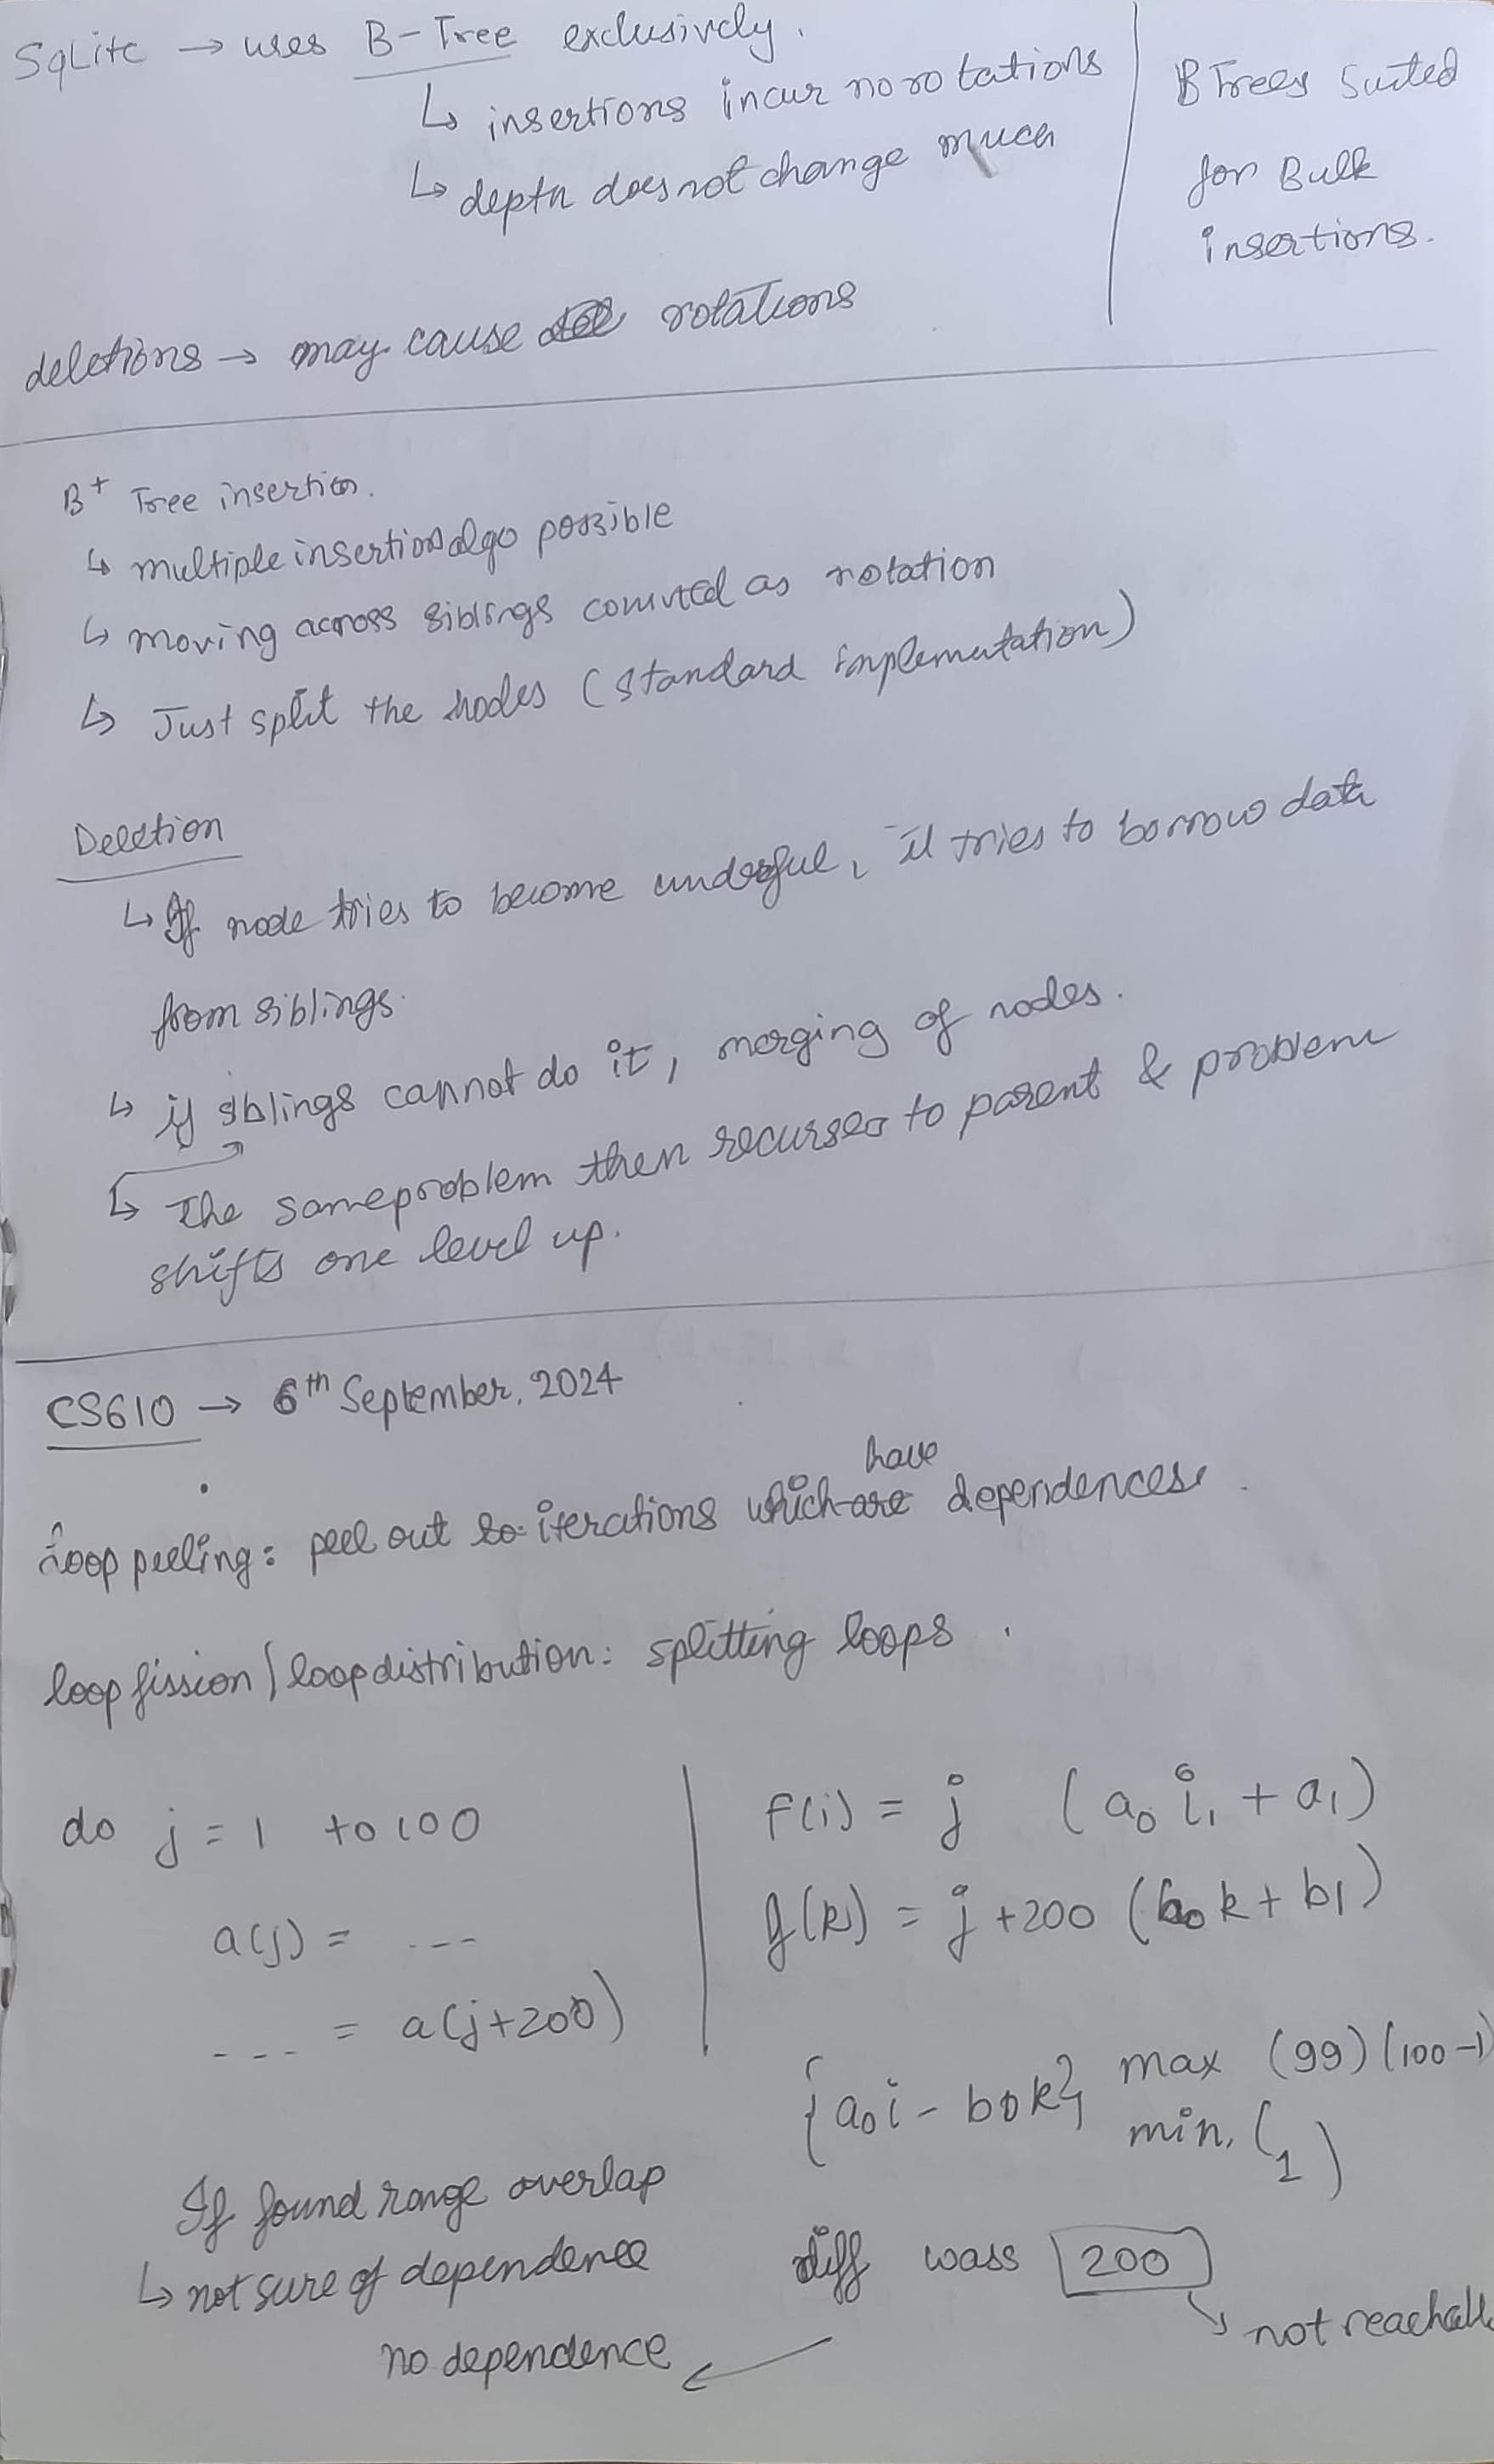 SqLite → uses B-Tree exclusively.
↳ insertions incur no rotations
↳ depth does not change much
B Trees Suited
for Bulk
insertions.
deletions → may cause rotations
B+ Tree insertion.
↳ multiple insertion algo possible
↳ moving across siblings counted as rotation
↳ Just split the nodes (standard implementation)
Deletion
↳ If node tries to become underful, it tries to borrow data
from siblings.
↳ if siblings cannot do it, merging of nodes.
↳ The same problem then recurses to parent & problem
shifts one level up.
CS610 → 6th September, 2024
have
loop peeling: peel out iterations which are dependences.
loop fission / loop distribution: splitting loops.
do j = 1 to 100
a(j) = ---
--- = a(j+200)
f(i) = j (a0 i1 + a1)
g(k) = j+200 (b0 k + b1)
{a0 i - b0 k} max (99) (100-1)
min. (1)
If found range overlap
↳ not sure of dependence
diff wass 200
↳ not reachable
no dependence ←